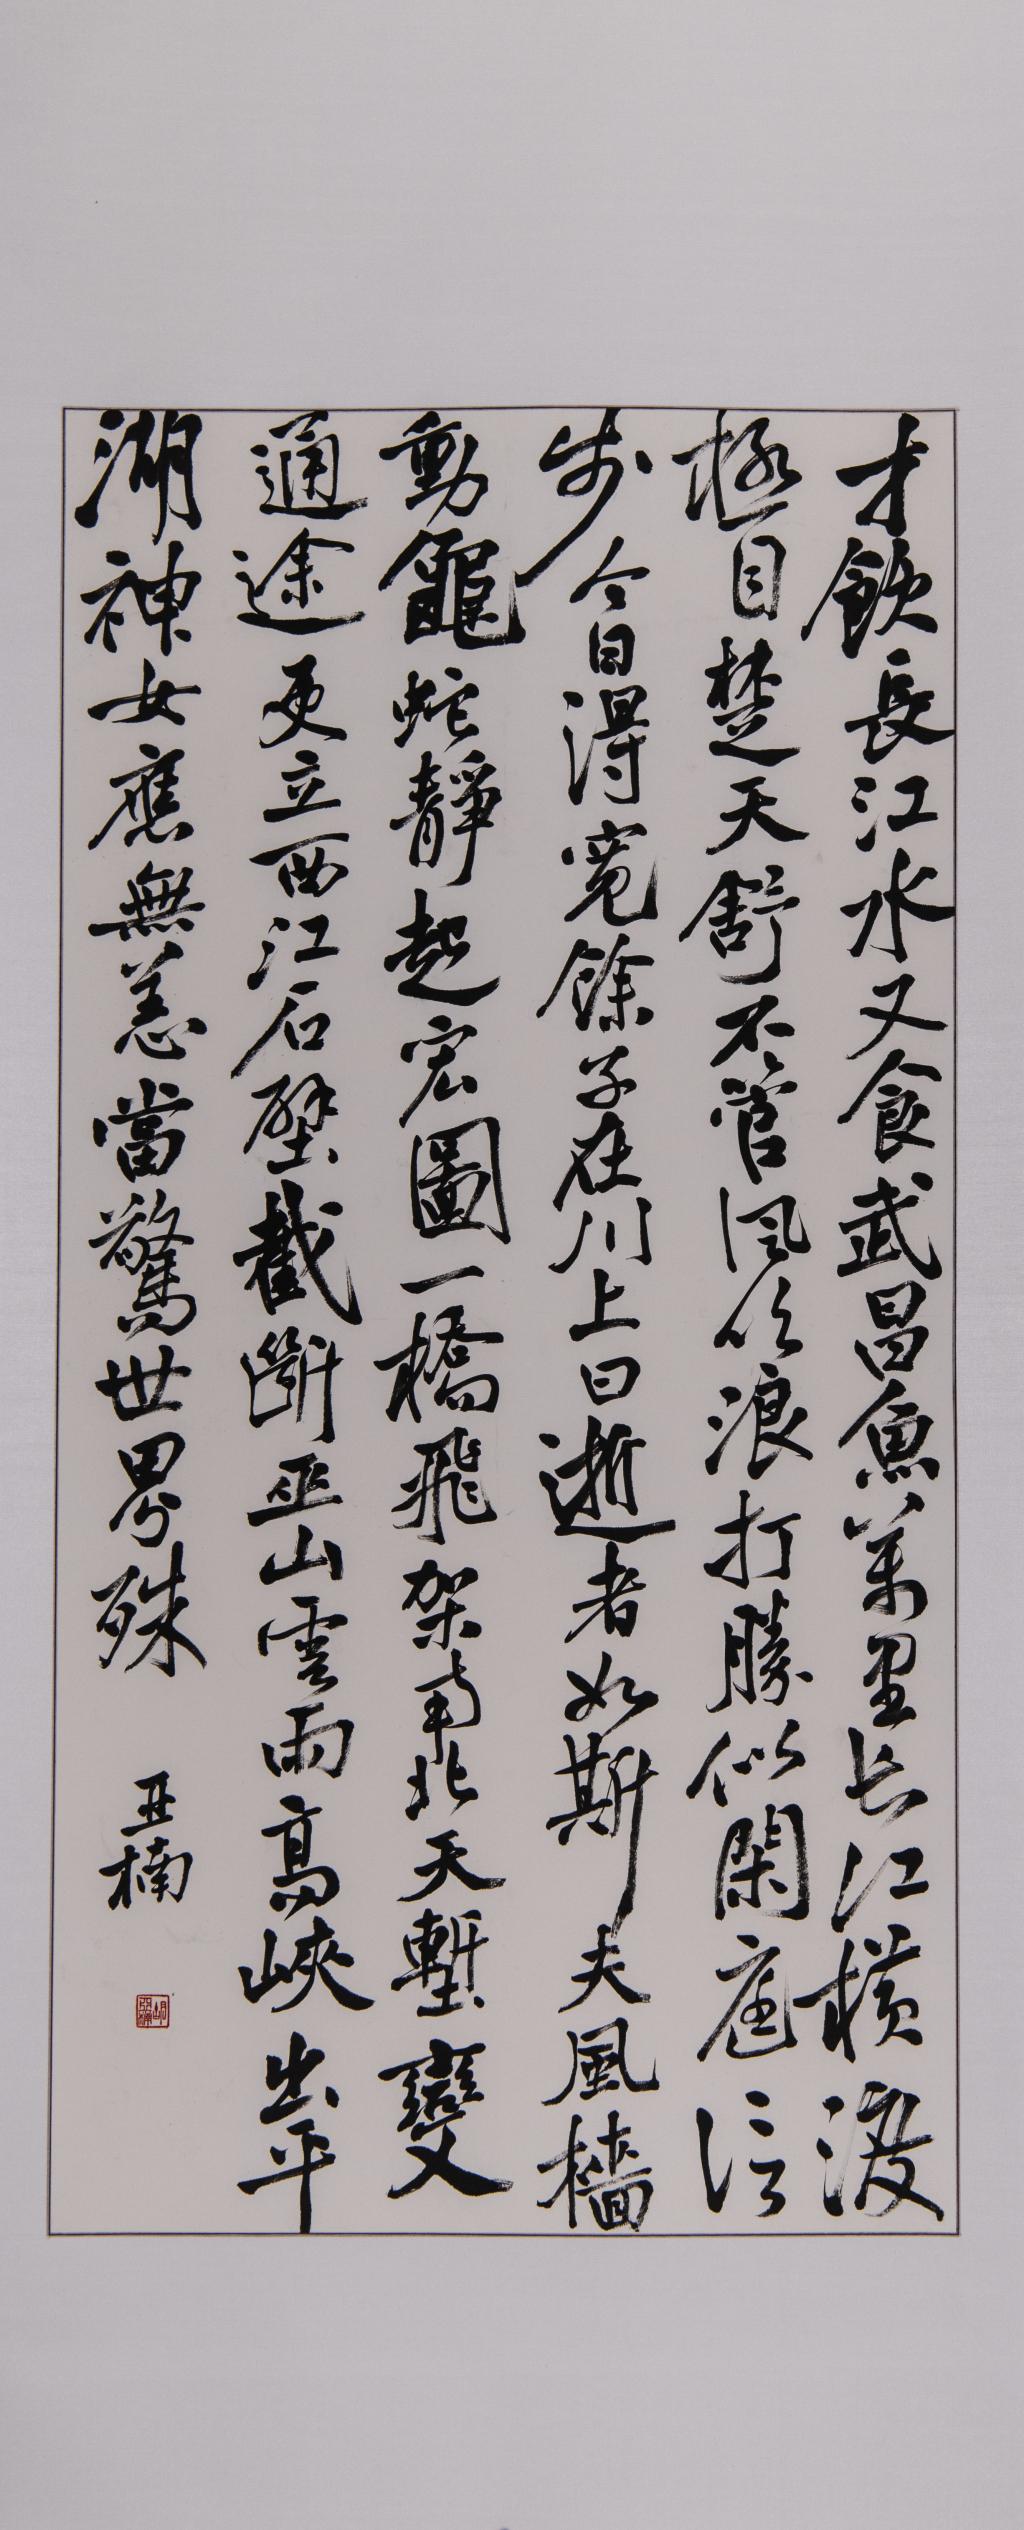 才飲長江水又食武昌魚萬里长江橫渡
極目楚天舒不管風吹浪打勝似閑庭信
步今日得寬餘子在川上曰逝者如斯夫風檣
動龜蛇靜起宏圖一橋飛架南北天塹變
通途更立西江石壁截斷巫山雲雨高峽出平
湖神女應無恙當驚世界殊
亚楠